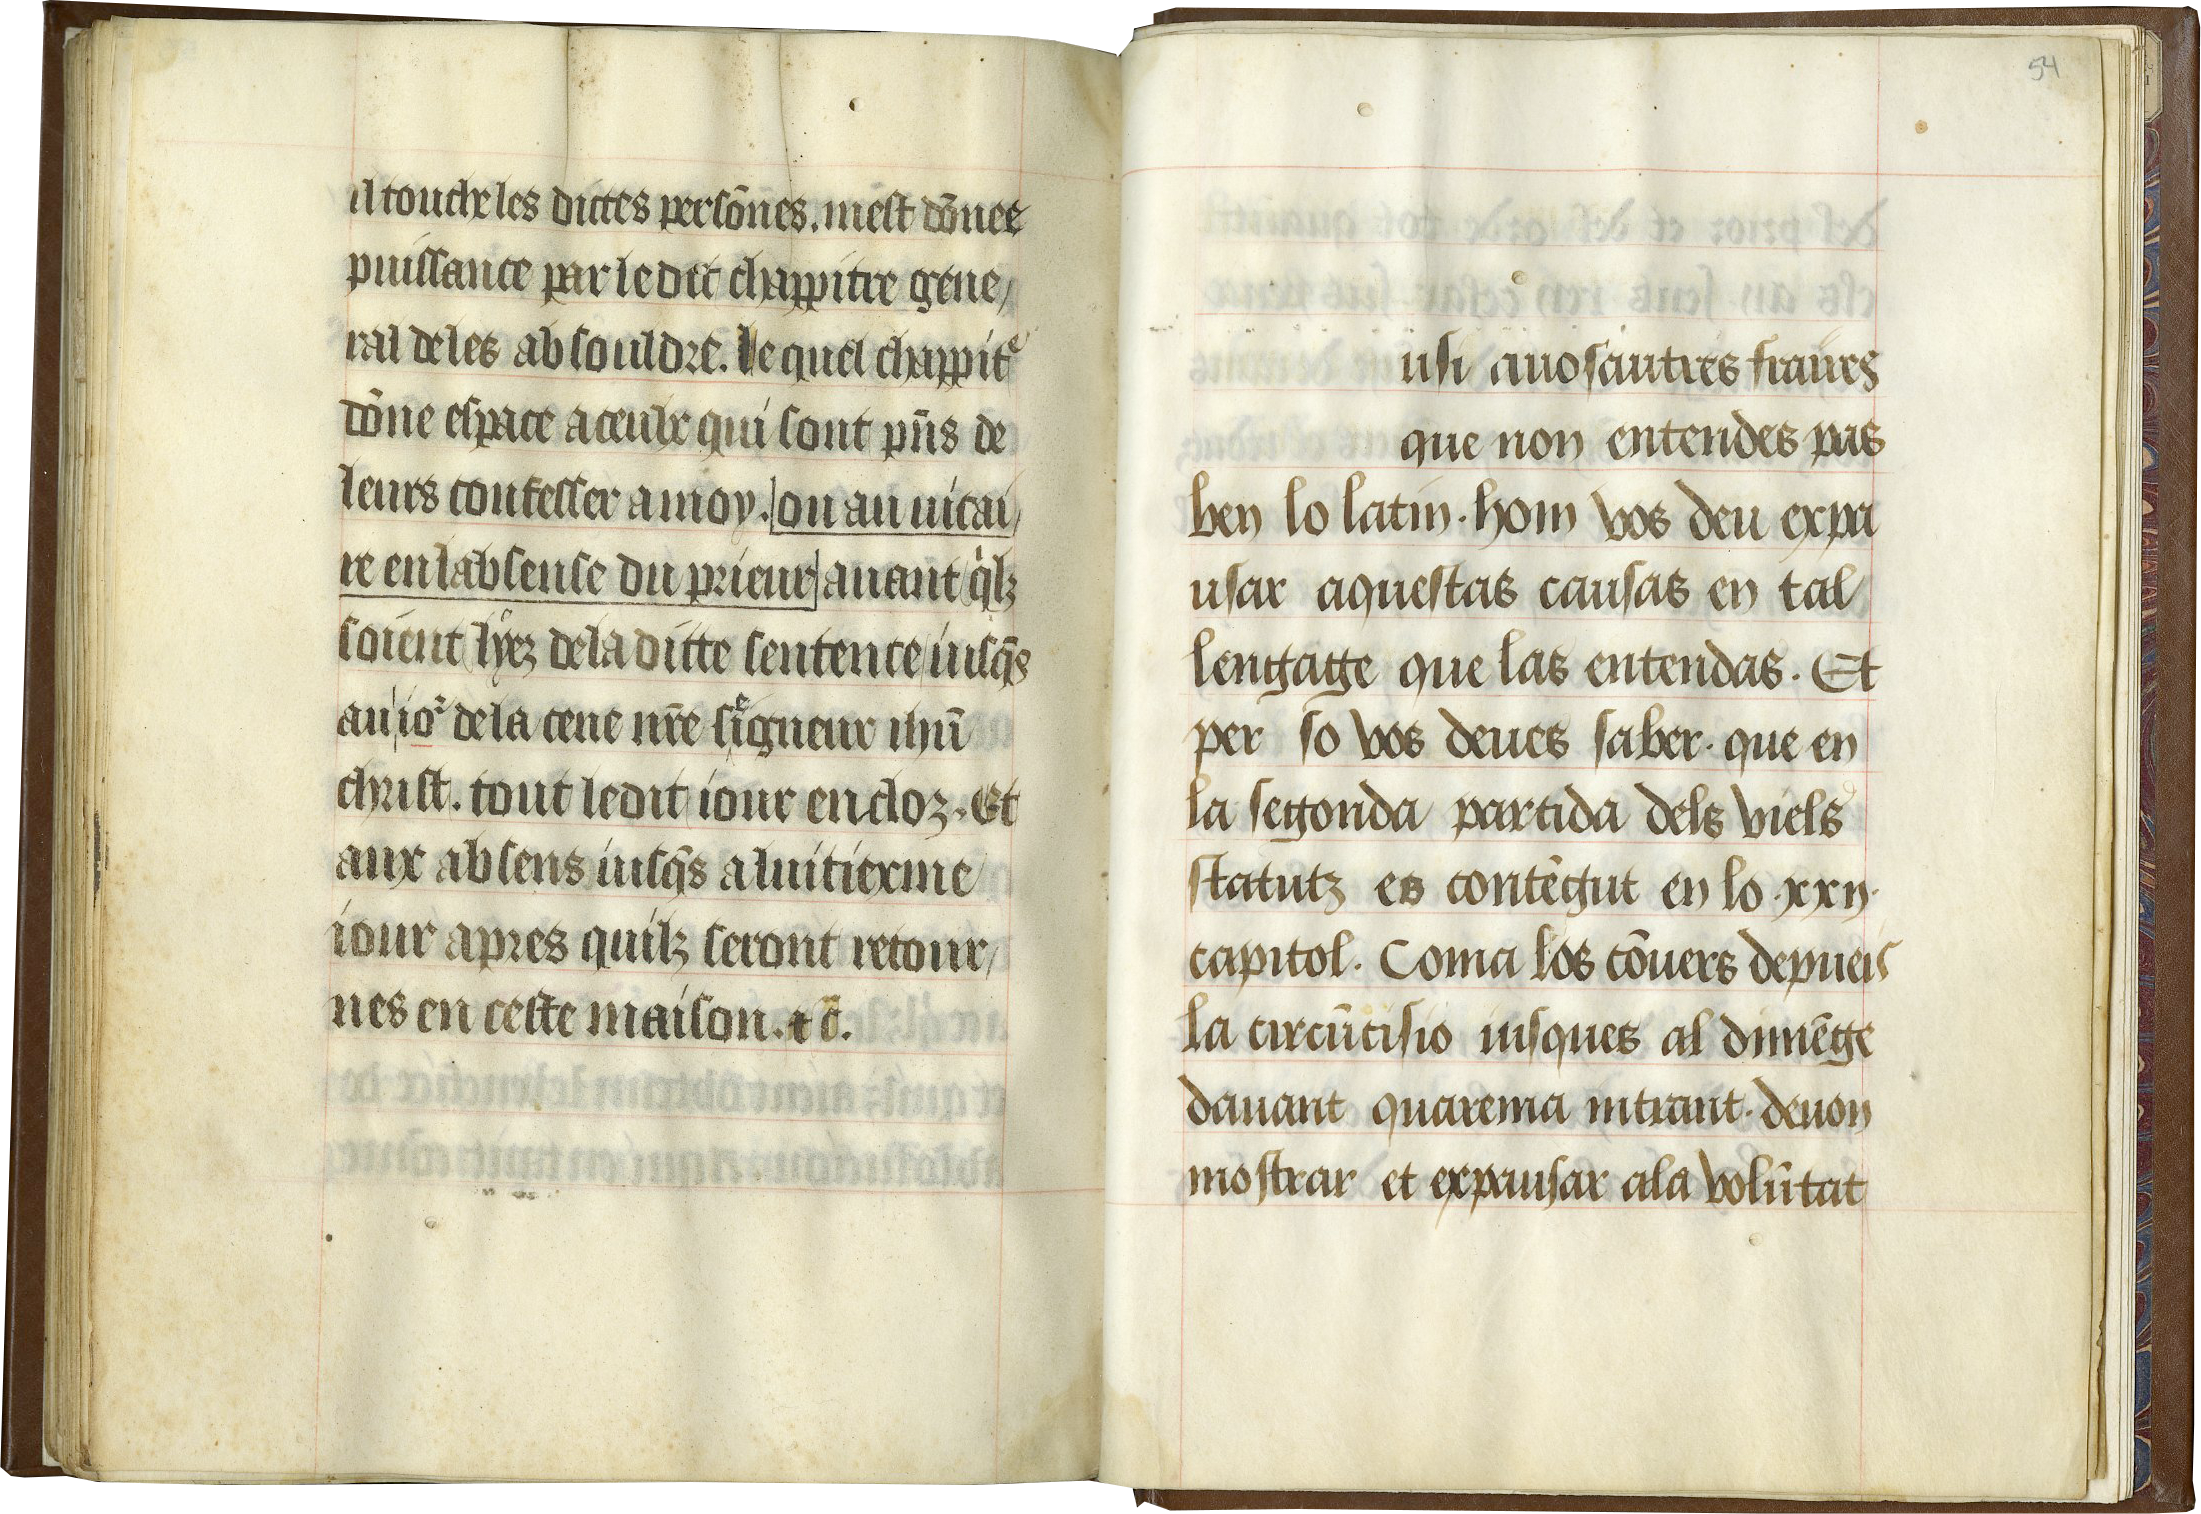 il touche les dictes persōnes. mest dōnee
puissance par ledit chappitre gene/
ral de les absouldre. le quel chappitᵉ
dōne espace a ceulx qui sont pn̄s de
leurs confesser a moy. ou au uicai/
re en labsense du prieur auant qⁱlz
soient lyez de la ditte sentence iusq̄s
au ioʳ de la cene nr̄e seigneur ihū
christ. tout ledit iour en cloz. Et
aux absens iusq̄s a luitiexme
iour apres quilz seront retour/
nes en ceste maison. ⁊ c̄.
54
usi auosautres fraires
que non entendes pas
ben lo latin. hom vos deu expa
usar aquestas causas en tal
lengage que las entendas. Et
per so vos deues saber. que en
la segonda partida dels viels
statutz es contēgut en lo .xxij.
capitol. Coma los cōuers depueis
la circūcisio iusques al dimēge
dauant quarema intrant. deuon
mostrar et expausar ala volūtat